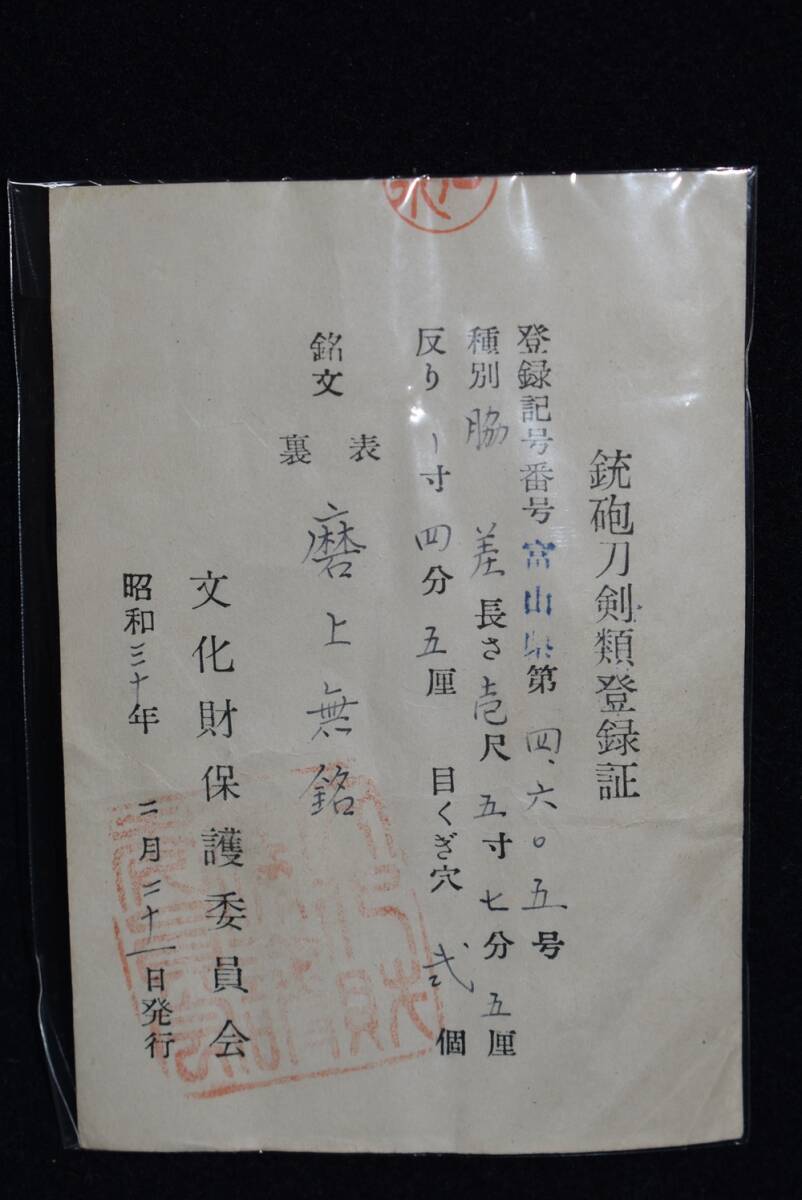 銃砲刀剣類登録証
登録記号番号富山県第四、六〇五号
種別 脇差 長さ壱尺五寸七分五厘
反り 一寸四分五厘 目くぎ穴 弐個
銘文
表
裏
磨上無銘
文化財保護委員会
昭和三十年 二月二十一日発行